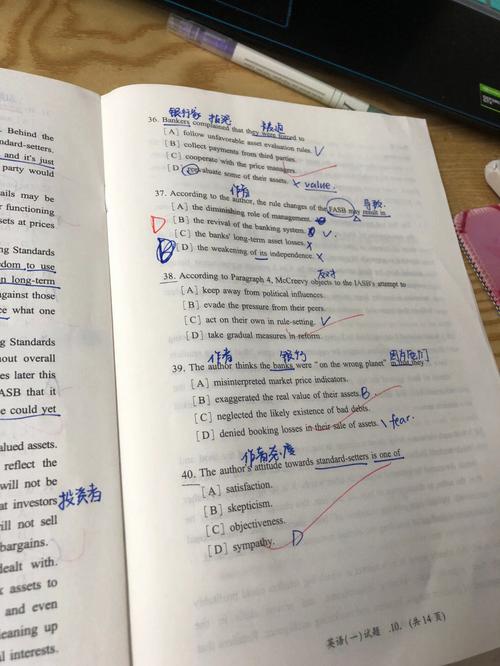 Behind the
standard-setters.
and it's just
party would
ails may be
functioning
sets at prices
ng Standards
dom to use
n long-term
against those
ce what one
ng Standards
out overall
es later this
ASB that it
e could yet
alued assets.
reflect the
will not be
at investors 投资者
ill not sell
bargains.
dealt with.
x assets to
and even
leaning up
l interests.
银行家 抱怨 被迫
36. Bankers complained that they were forced to
[A] follow unfavorable asset evaluation rules. √
[B] collect payments from third parties.
[C] cooperate with the price managers.
[D] reevaluate some of their assets. × value.
作者 导致
37. According to the author, the rule changes of the FASB may result in
[A] the diminishing role of management.
D [B] the revival of the banking system. √
[C] the banks' long-term asset losses. ×
[D] the weakening of its independence. ×
反对
38. According to Paragraph 4, McCreevy objects to the IASB's attempt to
[A] keep away from political influences.
[B] evade the pressure from their peers.
[C] act on their own in rule-setting. √
[D] take gradual measures in reform.
作者 银行 因为他们
39. The author thinks the banks were "on the wrong planet" in that they
[A] misinterpreted market price indicators.
[B] exaggerated the real value of their assets. B
[C] neglected the likely existence of bad debts.
[D] denied booking losses in their sale of assets. \ fear.
作者态度
40. The author's attitude towards standard-setters is one of
[A] satisfaction.
[B] skepticism.
[C] objectiveness.
[D] sympathy. D
英语(一)试题 .10. (共14页)